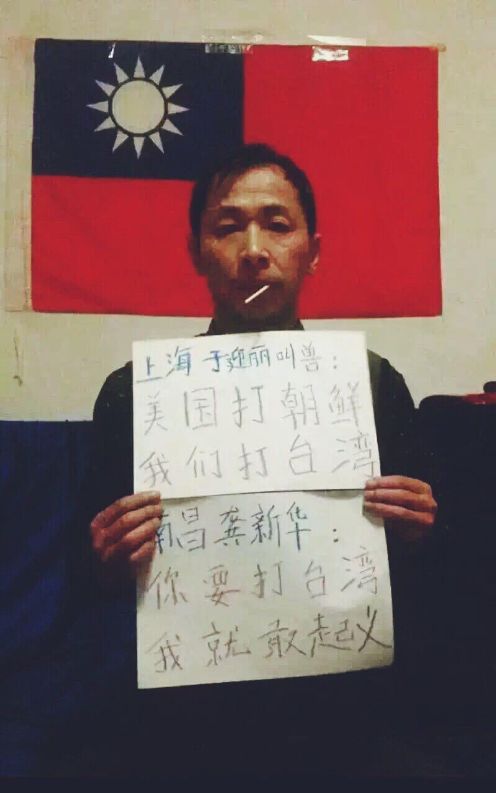 上海 于迎丽叫兽：
美国打朝鲜
我们打台湾
南昌龚新华：
你要打台湾
我就敢起义